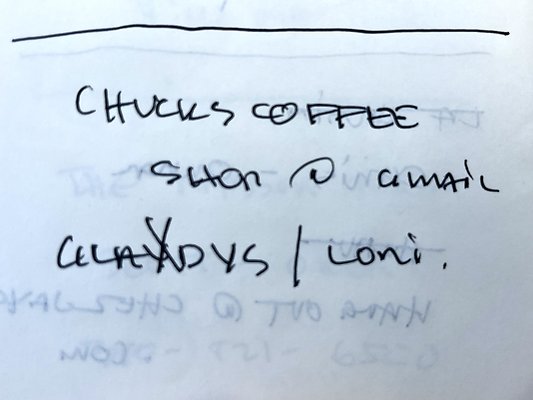 CHUCKS COFFEE
SHOP @ GMAIL
GLADYS / LONI.